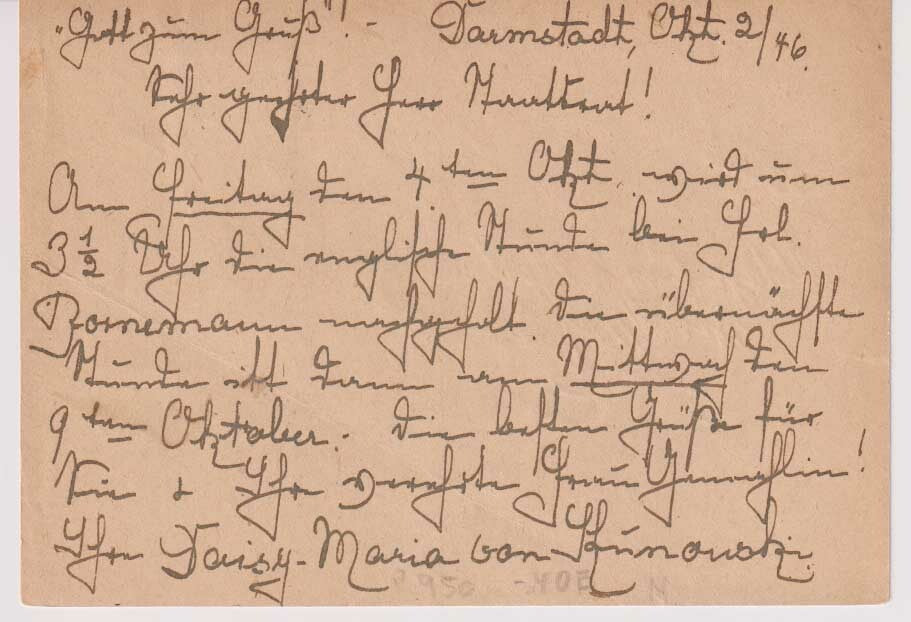 "Gott zum Gruß"! - Darmstadt, Okt. 2/46.
Sehr geehrter Herr Staatsrat!
Am Freitag den 4ten Okt. wird um
3 1/2 Uhr die englische Stunde bei Frl.
Bornemann nachgeholt. Die übernächste
Stunde ist dann am Mittwoch den
9ten Oktober. Die besten Grüße für
Sie & Ihre verehrte Frau Gemahlin!
Ihre Daisy-Maria von Kunowski.